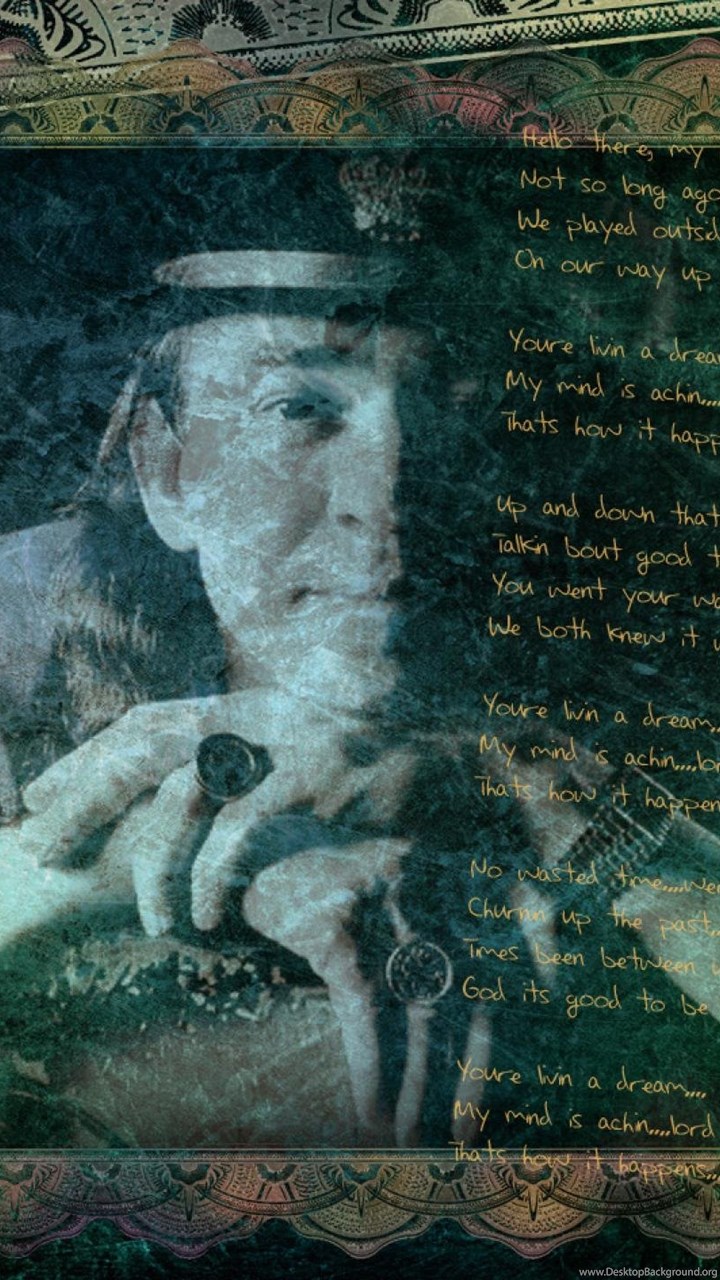 Hello there, my
Not so long ago
We played outsid
On our way up
Youre livin a drea
My mind is achin,,,,
Thats how it happ
Up and down that
Talkin bout good t
You went your wa
We both knew it w
Youre livin a dream,,
My mind is achin,,,,lor
Thats how it happen
No wasted time,,,,,wer
Churnin up the past,,
Times been between
God its good to be
Youre livin a dream,,,,
My mind is achin,,,,lord
Thats how it happens,,
www.DesktopBackground.org